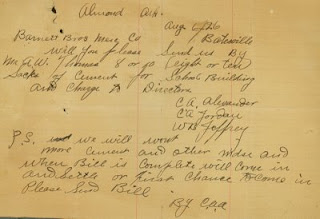 Almond Ark.
Aug 6/26
Barnett Bros Merc Co. Batesville
Will you please Send us By
Mr A.W. Thomas 8 or 10 (eight or ten)
Sacks of Cement for School Building
and Charge To Directors
C.A. Alexander
C.A. Jordan
W.D. Joffrey
P.S. we will want
more cement and other mdse and
when Bill is Complete will Come in
and settle or First Chance To come in
Please Send Bill
By C.A.A.